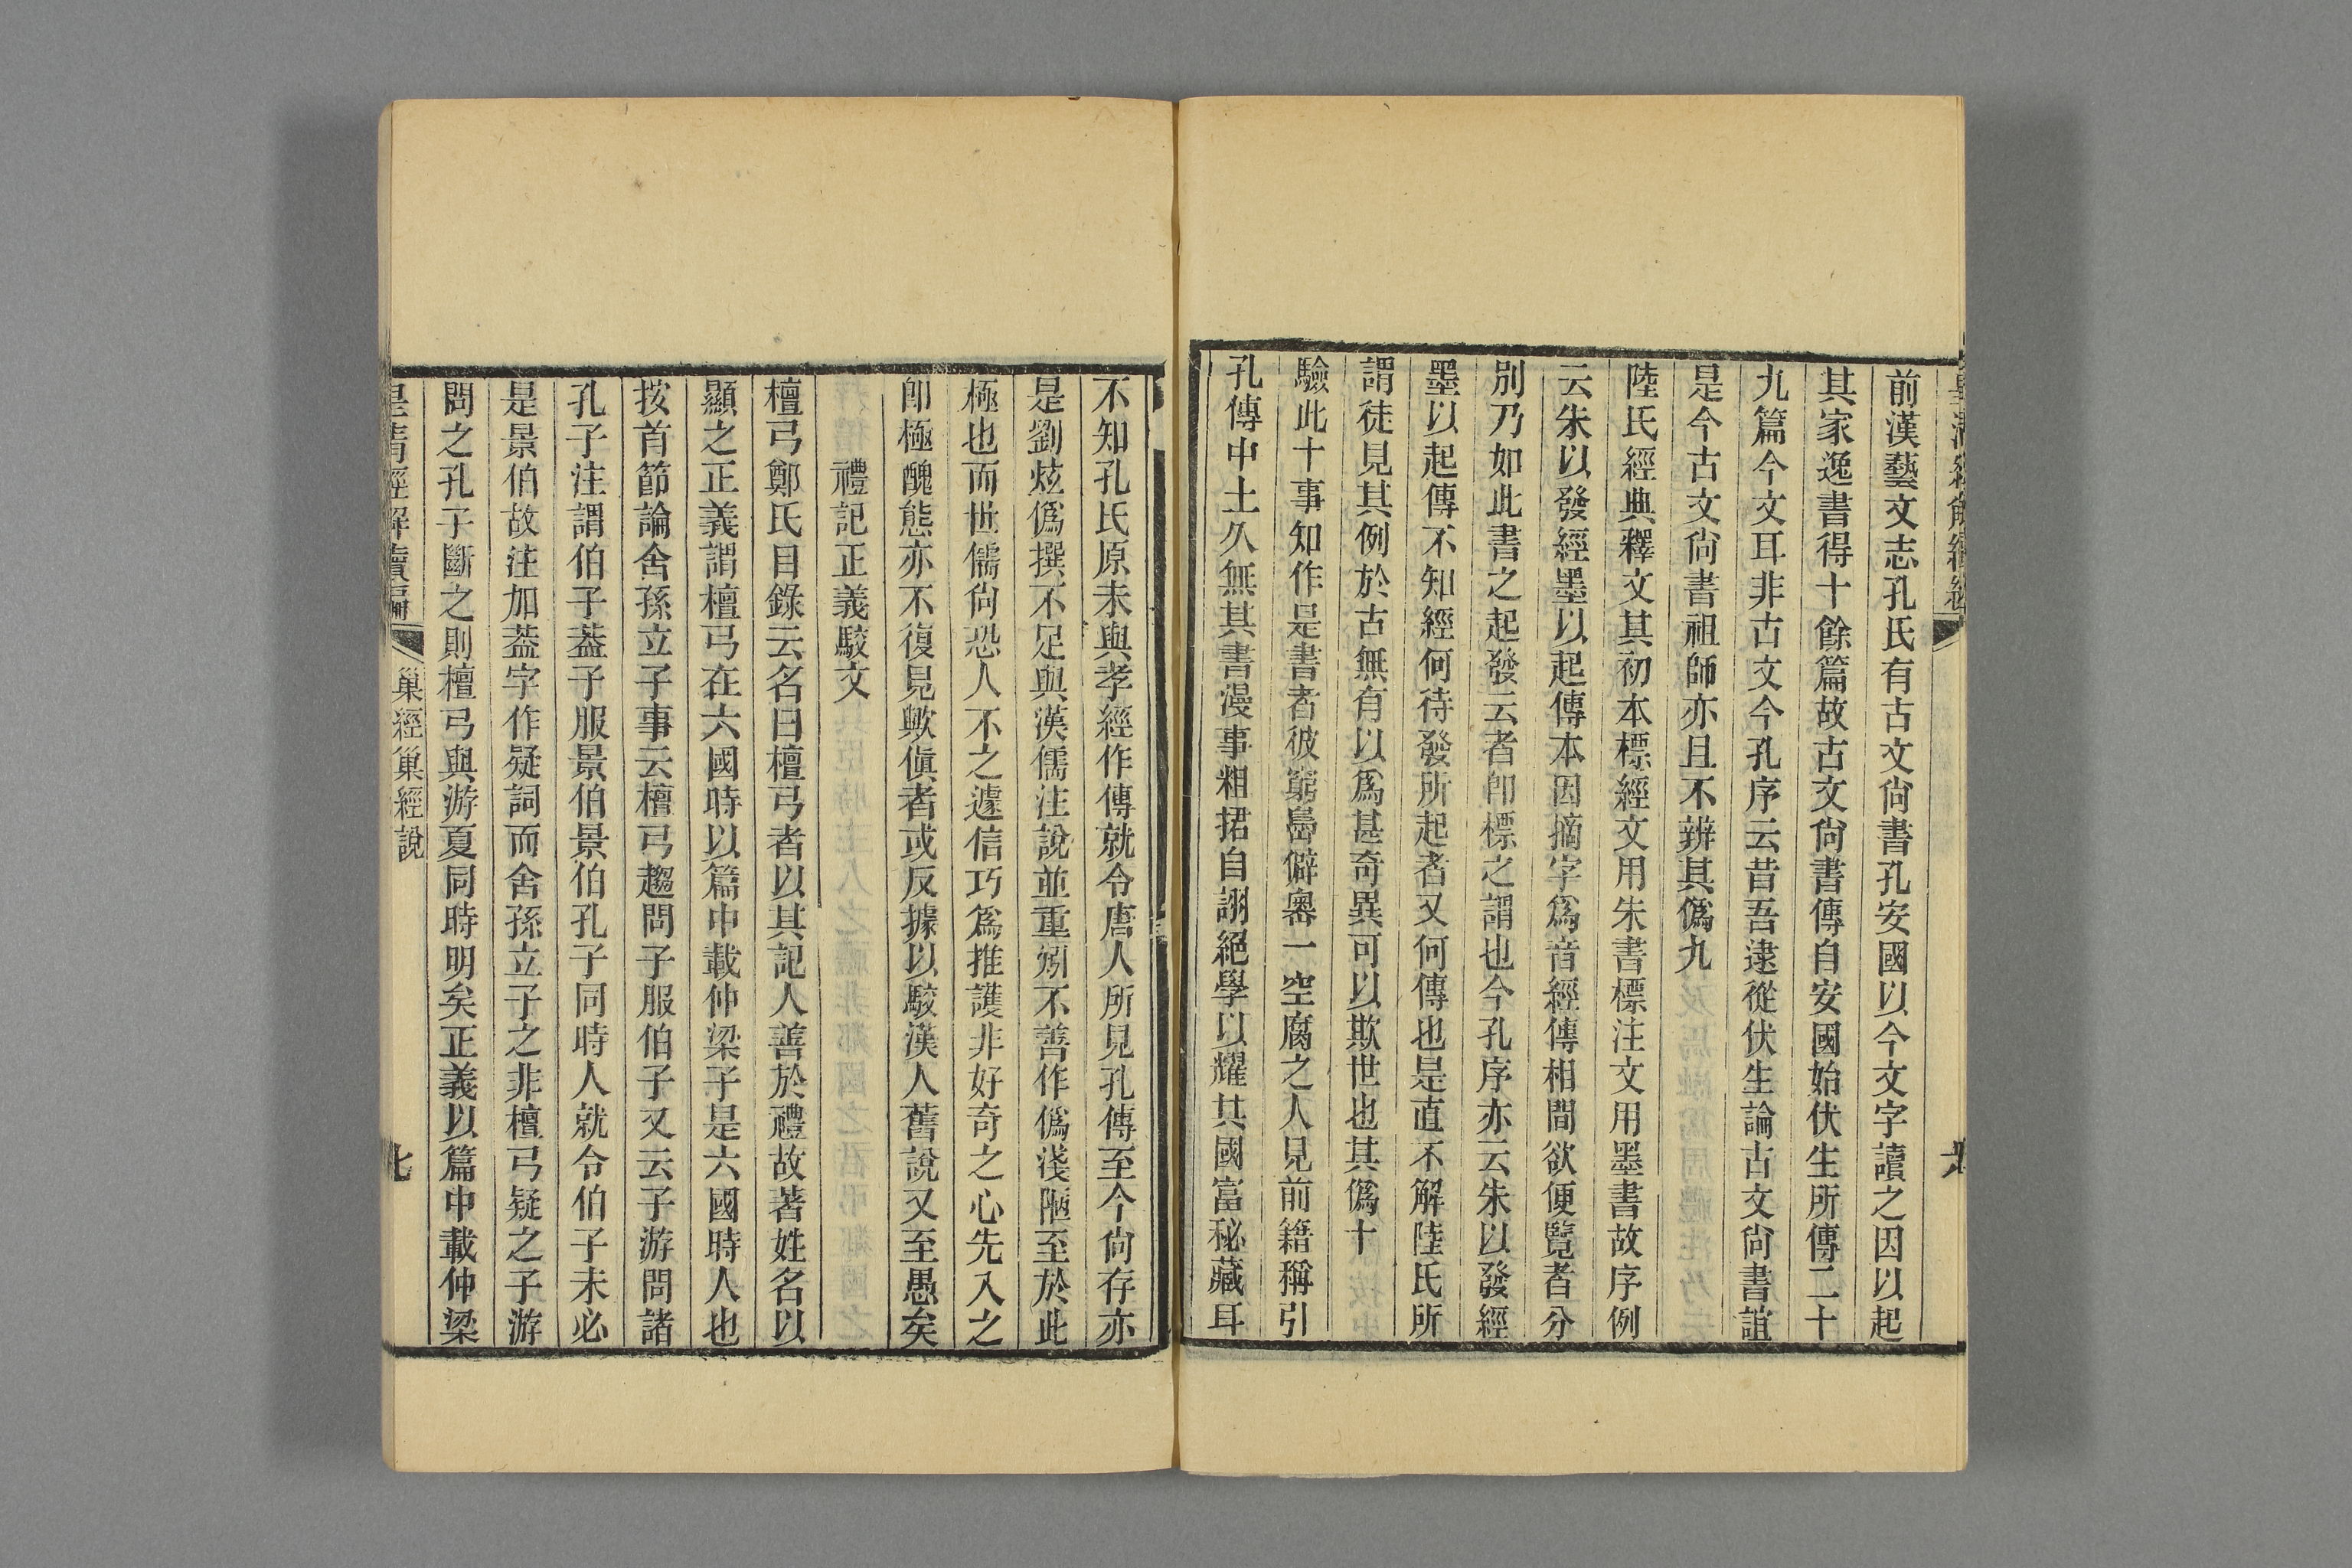 前漢藝文志孔氏有古文尙書孔安國以今文字讀之因以起
其家逸書得十餘篇故古文尙書傳自安國始伏生所傳二十
九篇今文耳非古文今孔序云昔吾逮從伏生論古文尙書誼
是今古文尙書祖師亦且不辨其僞九
陸氏經典釋文其初本標經文用朱書標注文用墨書故序例
云朱以發經墨以起傳本因摘字爲音經傳相間欲便覽者分
別乃如此書之起發云者卽標之謂也今孔序亦云朱以發經
墨以起傳不知經何待發所起者又何傳也是直不解陸氏所
謂徒見其例於古無有以爲甚奇異可以欺世也其僞十
驗此十事知作是書者彼窮島僻嶴一空腐之人見前籍稱引
孔傳中土久無其書漫事粗捃自詡絕學以耀其國富秘藏耳
不知孔氏原未與孝經作傳就令唐人所見孔傳至今尙存亦
是劉炫僞撰不足與漢儒注說並重矧不善作僞淺陋至於此
極也而世儒尙恐人不之遽信巧爲推護非好奇之心先入之
卽極醜態亦不復見歟傎者或反據以駁漢人舊說又至愚矣
禮記正義駁文
檀弓鄭氏目錄云名曰檀弓者以其記人善於禮故著姓名以
顯之正義謂檀弓在六國時以篇中載仲梁子是六國時人也
按首節論舍孫立子事云檀弓趨問子服伯子又云子游問諸
孔子注謂伯子蓋子服景伯景伯孔子同時人就令伯子未必
是景伯故注加蓋字作疑詞而舍孫立子之非檀弓疑之子游
問之孔子斷之則檀弓與游夏同時明矣正義以篇中載仲梁
皇清經解續編
巢經巢經說
七